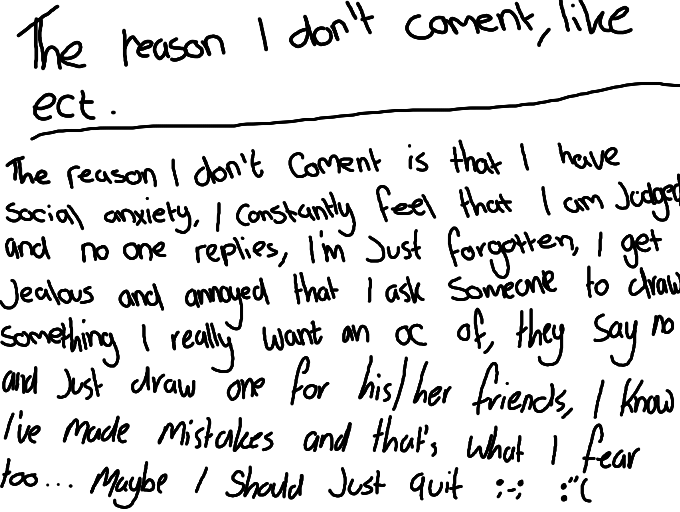 The reason I don't coment, like
ect.
The reason I don't Coment is that I have
social anxiety, I constantly feel that I am Judged
and no one replies, I'm Just forgotten, I get
Jealous and annoyed that I ask someone to draw
something I really want an oc of, they say no
and Just draw one for his/her friends, I know
I've made mistakes and that's what I fear
too... Maybe I Should Just quit :-; :"(